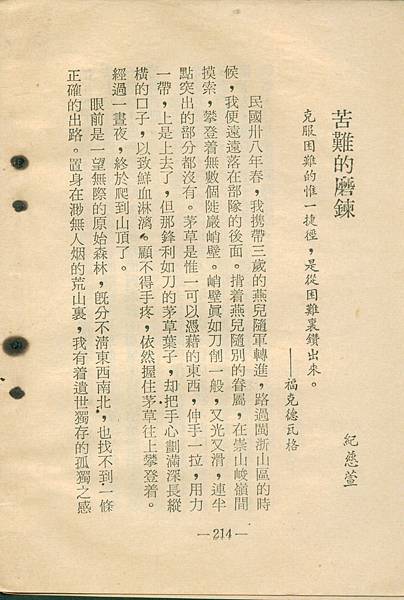 苦難的磨鍊
紀慈萱
克服困難的惟一捷徑,是從困難裏鑽出來。
——福克德瓦格
民國卅八年春,我携帶三歲的燕兒隨軍轉進,路過閩浙山區的時
候,我便遠遠落在部隊的後面。揹着燕兒隨別的眷屬,在崇山峻嶺間
摸索,攀登着無數個陡巖峭壁。峭壁眞如刀削一般,又光又滑,連半
點突出的部分都沒有。茅草是惟一可以憑藉的東西,伸手一拉,用力
一帶,上是上去了,但那鋒利如刀的茅草葉子,却把手心劃滿深長縱
橫的口子,以致鮮血淋漓。顧不得手疼,依然握住茅草往上攀登着。
經過一晝夜,終於爬到山頂了。
眼前是一望無際的原始森林,旣分不清東西南北,也找不到一條
正確的出路。置身在渺無人烟的荒山裏,我有着遺世獨存的孤獨之感
—214—